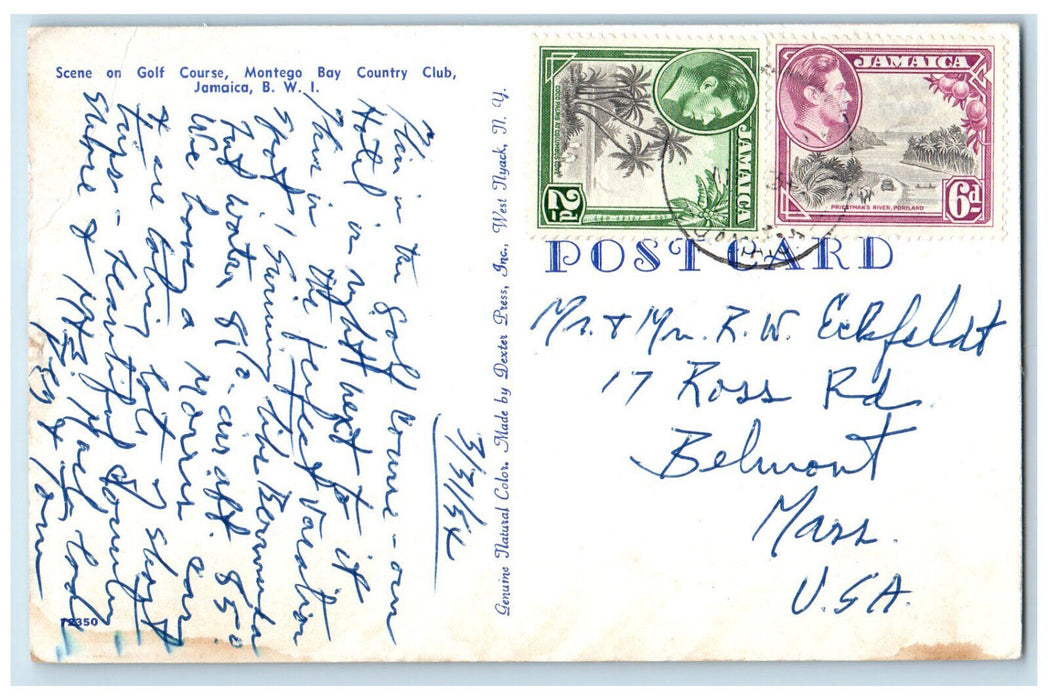 Scene on Golf Course, Montego Bay Country Club,
Jamaica, B. W. I.
3/31/54
This is the golf course - our
Hotel is right next to it
This is the perfect vacation
Spot! Swimming like Bermuda
but water 81°. air aft 85°
We have a Morris car
& are taking lots of short
trips - beautiful country
shore &
Ed & Pam
72350
Genuine Natural Color. Made by Dexter Press, Inc., West Nyack, N. Y.
COCO PALMS AT COLUMBUS COVE
JAMAICA
2d
JAMAICA
PRIESTMAN'S RIVER, PORTLAND
6d
POST CARD
Mr. & Mrs. R. W. Eckfeldt
17 Ross Rd
Belmont
Mass.
U.S.A.